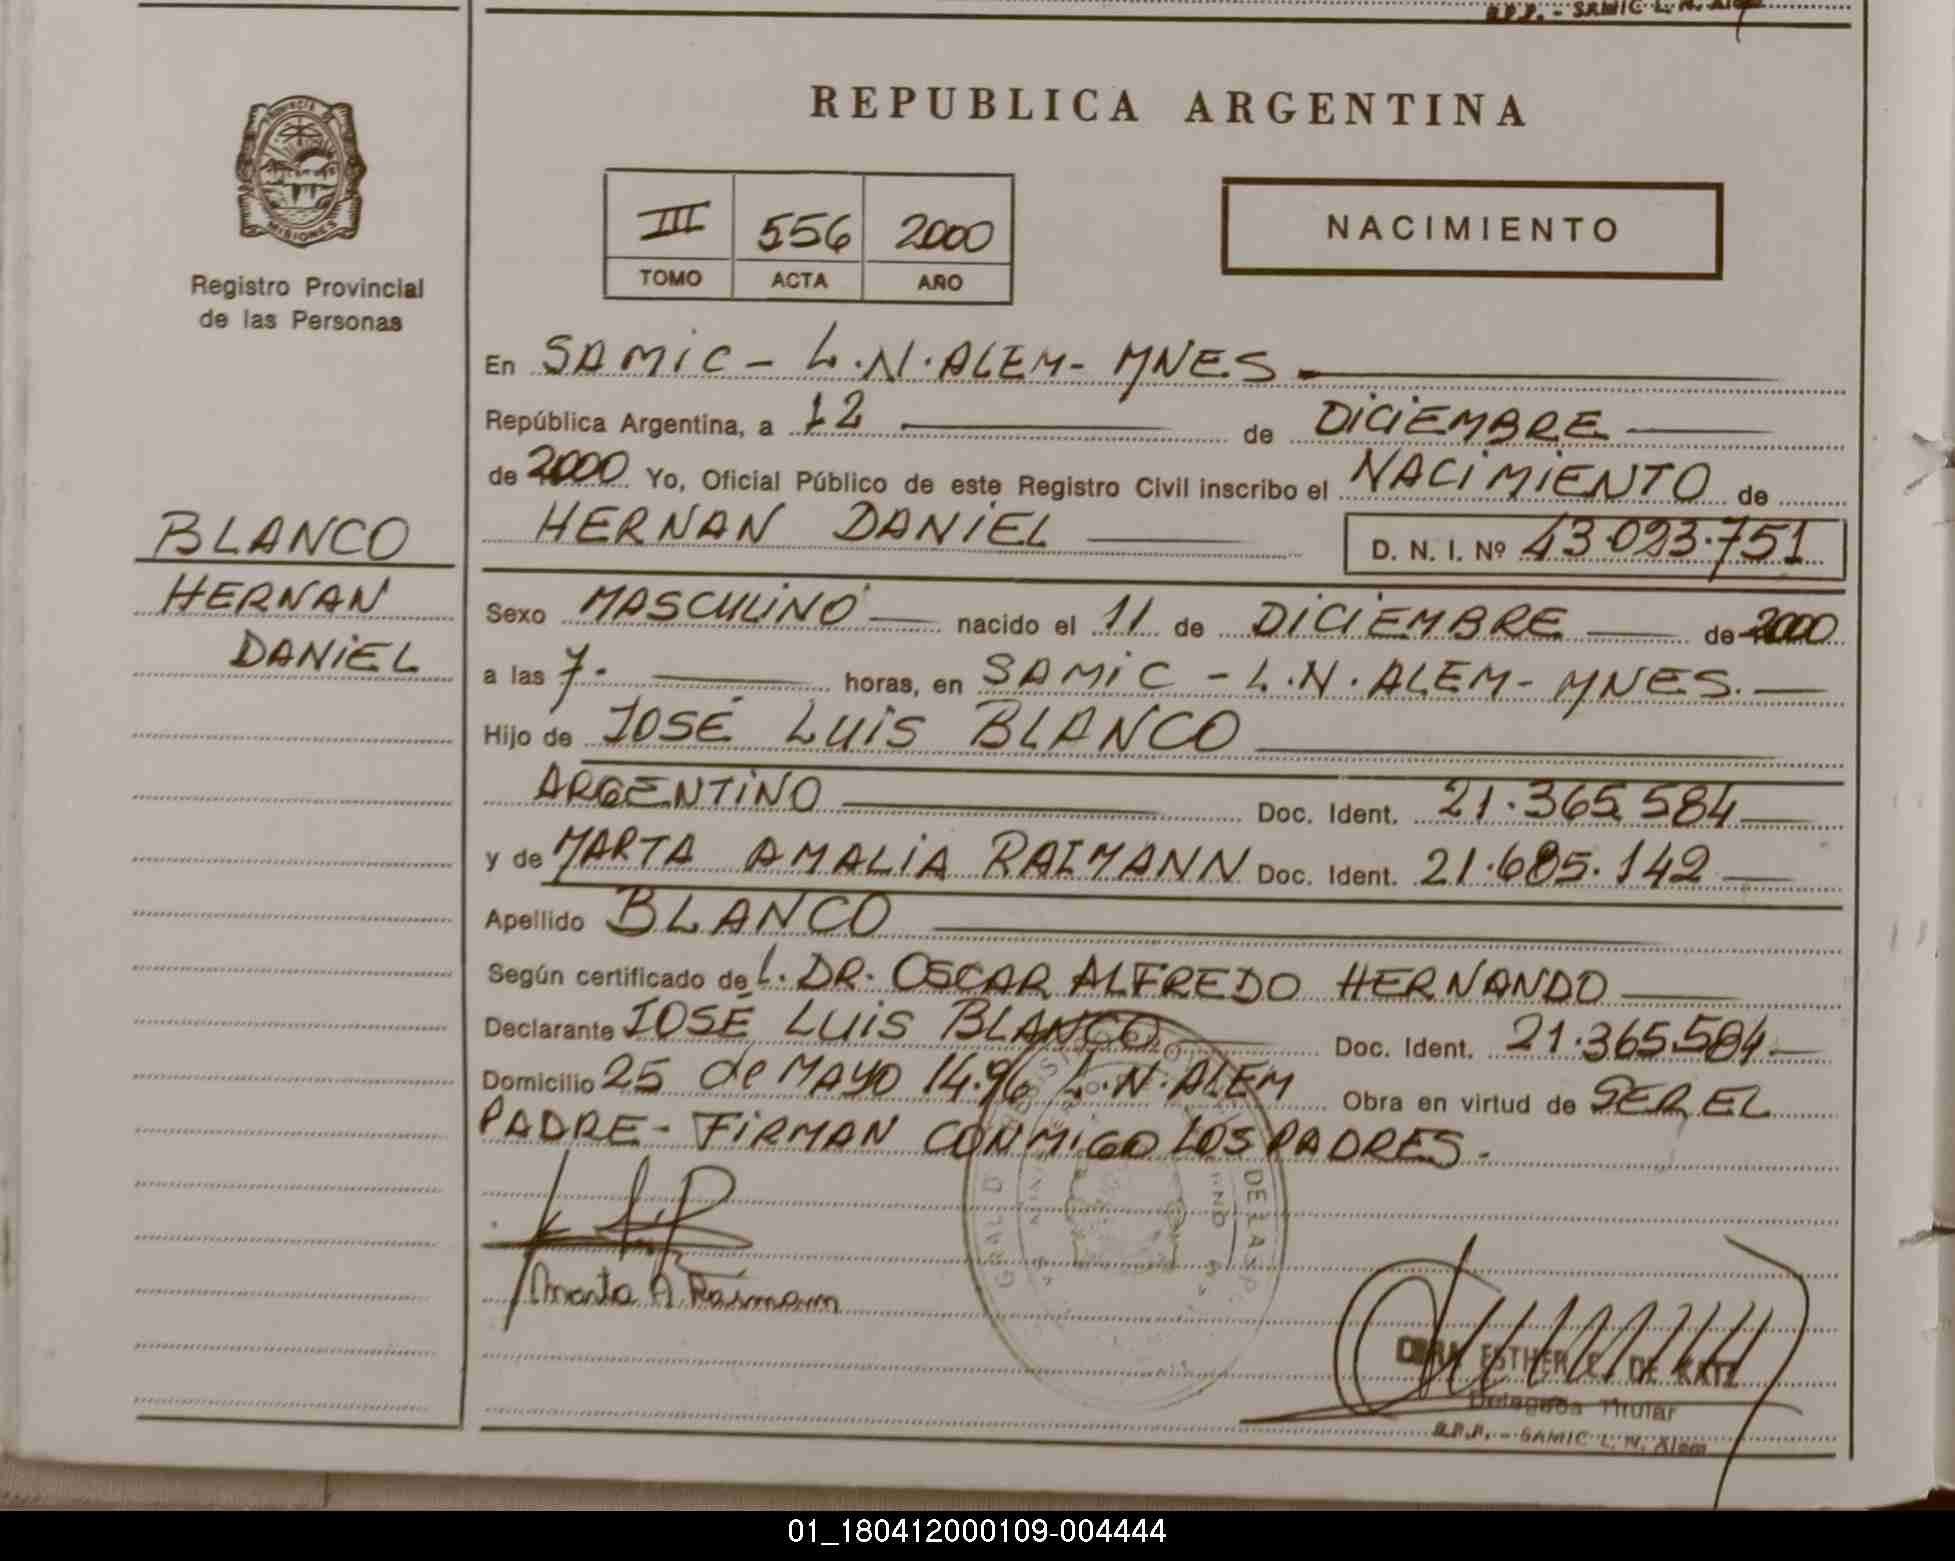 R.P.P. - SAMIC L. N. Alem
REPUBLICA ARGENTINA
PROVINCIA
MISIONES
III 556 2000
TOMO ACTA AÑO
NACIMIENTO
Registro Provincial
de las Personas
En SAMIC - L.N.ALEM - MNES.
República Argentina, a 12 de DICIEMBRE
de 2000 Yo, Oficial Público de este Registro Civil inscribo el NACIMIENTO de
HERNAN DANIEL D. N. I. Nº 43.093.751
BLANCO
HERNAN
DANIEL
Sexo MASCULINO nacido el 11 de DICIEMBRE de 2000
a las 7. horas, en SAMIC - L.N.ALEM - MNES.
Hijo de JOSÉ LUIS BLANCO
ARGENTINO Doc. Ident. 21.365.584
y de MARTA AMALIA RAIMANN Doc. Ident. 21.685.142
Apellido BLANCO
Según certificado del. DR. OSCAR ALFREDO HERNANDO
Declarante JOSÉ LUIS BLANCO Doc. Ident. 21.365.584
Domicilio 25 de MAYO 1496 L.N.ALEM Obra en virtud de SER EL
PADRE - FIRMAN CONMIGO LOS PADRES.
Marta A Raimann
ESTHER C. DE KATZ
Delegada Titular
R.P.P. - SAMIC L. N. Alem
01_180412000109-004444